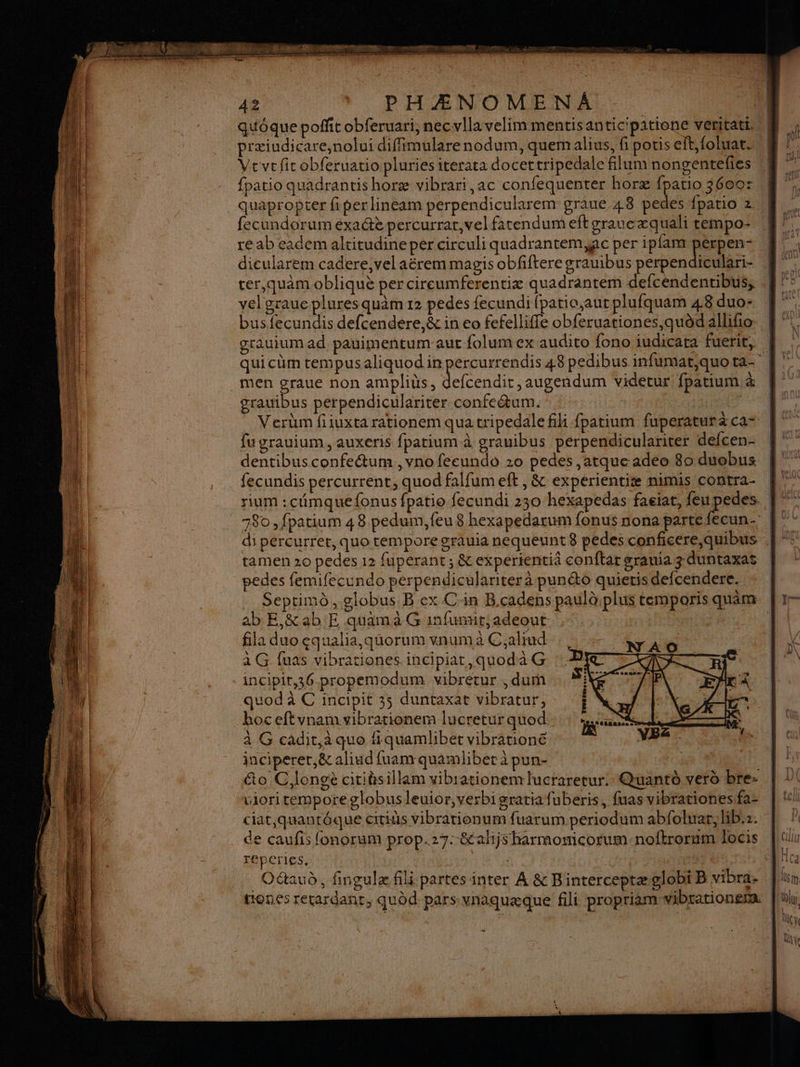 42 PHÆNOMENA
quóque poſſit obſeruari, nec vlla velim mentis anticipatione veritati
præiudicare, nolui diſſimulare nodum, quem alius, ſi potis eſt, ſoluat.
Vt vt ſit obſeruatio pluries iterata docet tripedale filum nongenteſies
ſpatio quadrantis horæ vibrari, ac conſequenter horæ ſpatio 3600:
quapropter ſi per lineam perpendicularem graue 48 pedes ſpatio 2
ſecundorum exactè percurrat, vel fatendum eſt graue æquali tempo-
re ab eadem altitudine per circuli quadrantem, ac per ipſam perpen-
dicularem cadere, vel aërem magis obſiſtere grauibus perpendiculari-
ter, quàm obliquè per circumferentiæ quadrantem deſcendentibus,
vel graue plures quàm 12 pedes ſecundi ſpatio, aut pluſquam 48 duo-
bus ſecundis deſcendere, & in eo fefelliſſe obſeruationes, quòd alliſio
grauium ad pauimentum aut ſolum ex audito ſono iudicata fuerit,
qui cùm tempus aliquod in percurrendis 48 pedibus inſumat, quo ta-
men graue non ampliùs, deſcendit, augendum videtur ſpatium à
grauibus perpendiculariter confectum.
Verùm ſi iuxta rationem qua tripedale fili ſpatium ſuperatur à ca-
ſu grauium, auxeris ſpatium à grauibus perpendiculariter deſcen-
dentibus confectum, vno ſecundo 20 pedes, atque adeo 80 duobus
ſecundis percurrent, quod falſum eſt, & experientiæ nimis contra-
rium: cúmque ſonus ſpatio ſecundi 230 hexapedas faciat, ſeu pedes
780, ſpatium 48 pedum, ſeu 8 hexapedarum ſonus nona parte ſecun-
di percurret, quo tempore grauia nequeunt 8 pedes conficere, quibus
tamen 20 pedes 12 ſuperant; & experientiâ conſtat grauia 3 duntaxat
pedes ſemiſecundo perpendiculariter à puncto quietis deſcendere.
Septimò, globus B ex C in B cadens paulò plus temporis quàm
ab E, & ab E quàm à G inſumit, adeout
fila duo æqualia, quorum vnum à C, aliud
à G ſuas vibrationes incipiat, quod à G
incipit, 36 propemodum vibretur, dum
quod à C incipit 35 duntaxat vibratur,
hoc eſt vnam vibrationem lucretur quod
à G cadit, à quo ſi quamlibet vibrationé
inciperet, & aliud ſuam quamlibet à pun-
cto C, longè citiùs illam vibrationem lucraretur. Quantò verò bre-
viori tempore globus leuior, verbi gratia ſuberis, ſuas vibrationes fa-
ciat, quantóque citiùs vibrationum ſuarum periodum abſoluat, lib. 2.
de cauſis ſonorum prop. 27. & alijs harmonicorum noſtrorum locis
reperies.
Octauò, ſingulæ fili partes inter A & B interceptæ globi B vibra-
tiones retardant, quòd pars vnaquæque fili propriam vibrationem